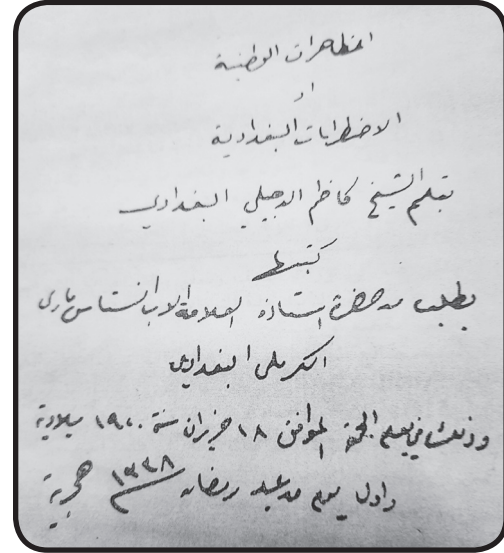 المظاهرات الوطنية
او
الاضطرابات البغدادية
بقلم الشيخ كاظم الدجيلي البغدادي
كتبها
بطلب من حضرة استاذه العلامة الاب انستاس ماري
الكرملي البغدادي
وذلك في يوم الجمعة الموافق ١٨ حزيران سنة ١٩٢٠ ميلادية
واول يوم من عيد رمضان سنة ١٣٣٨ هجرية